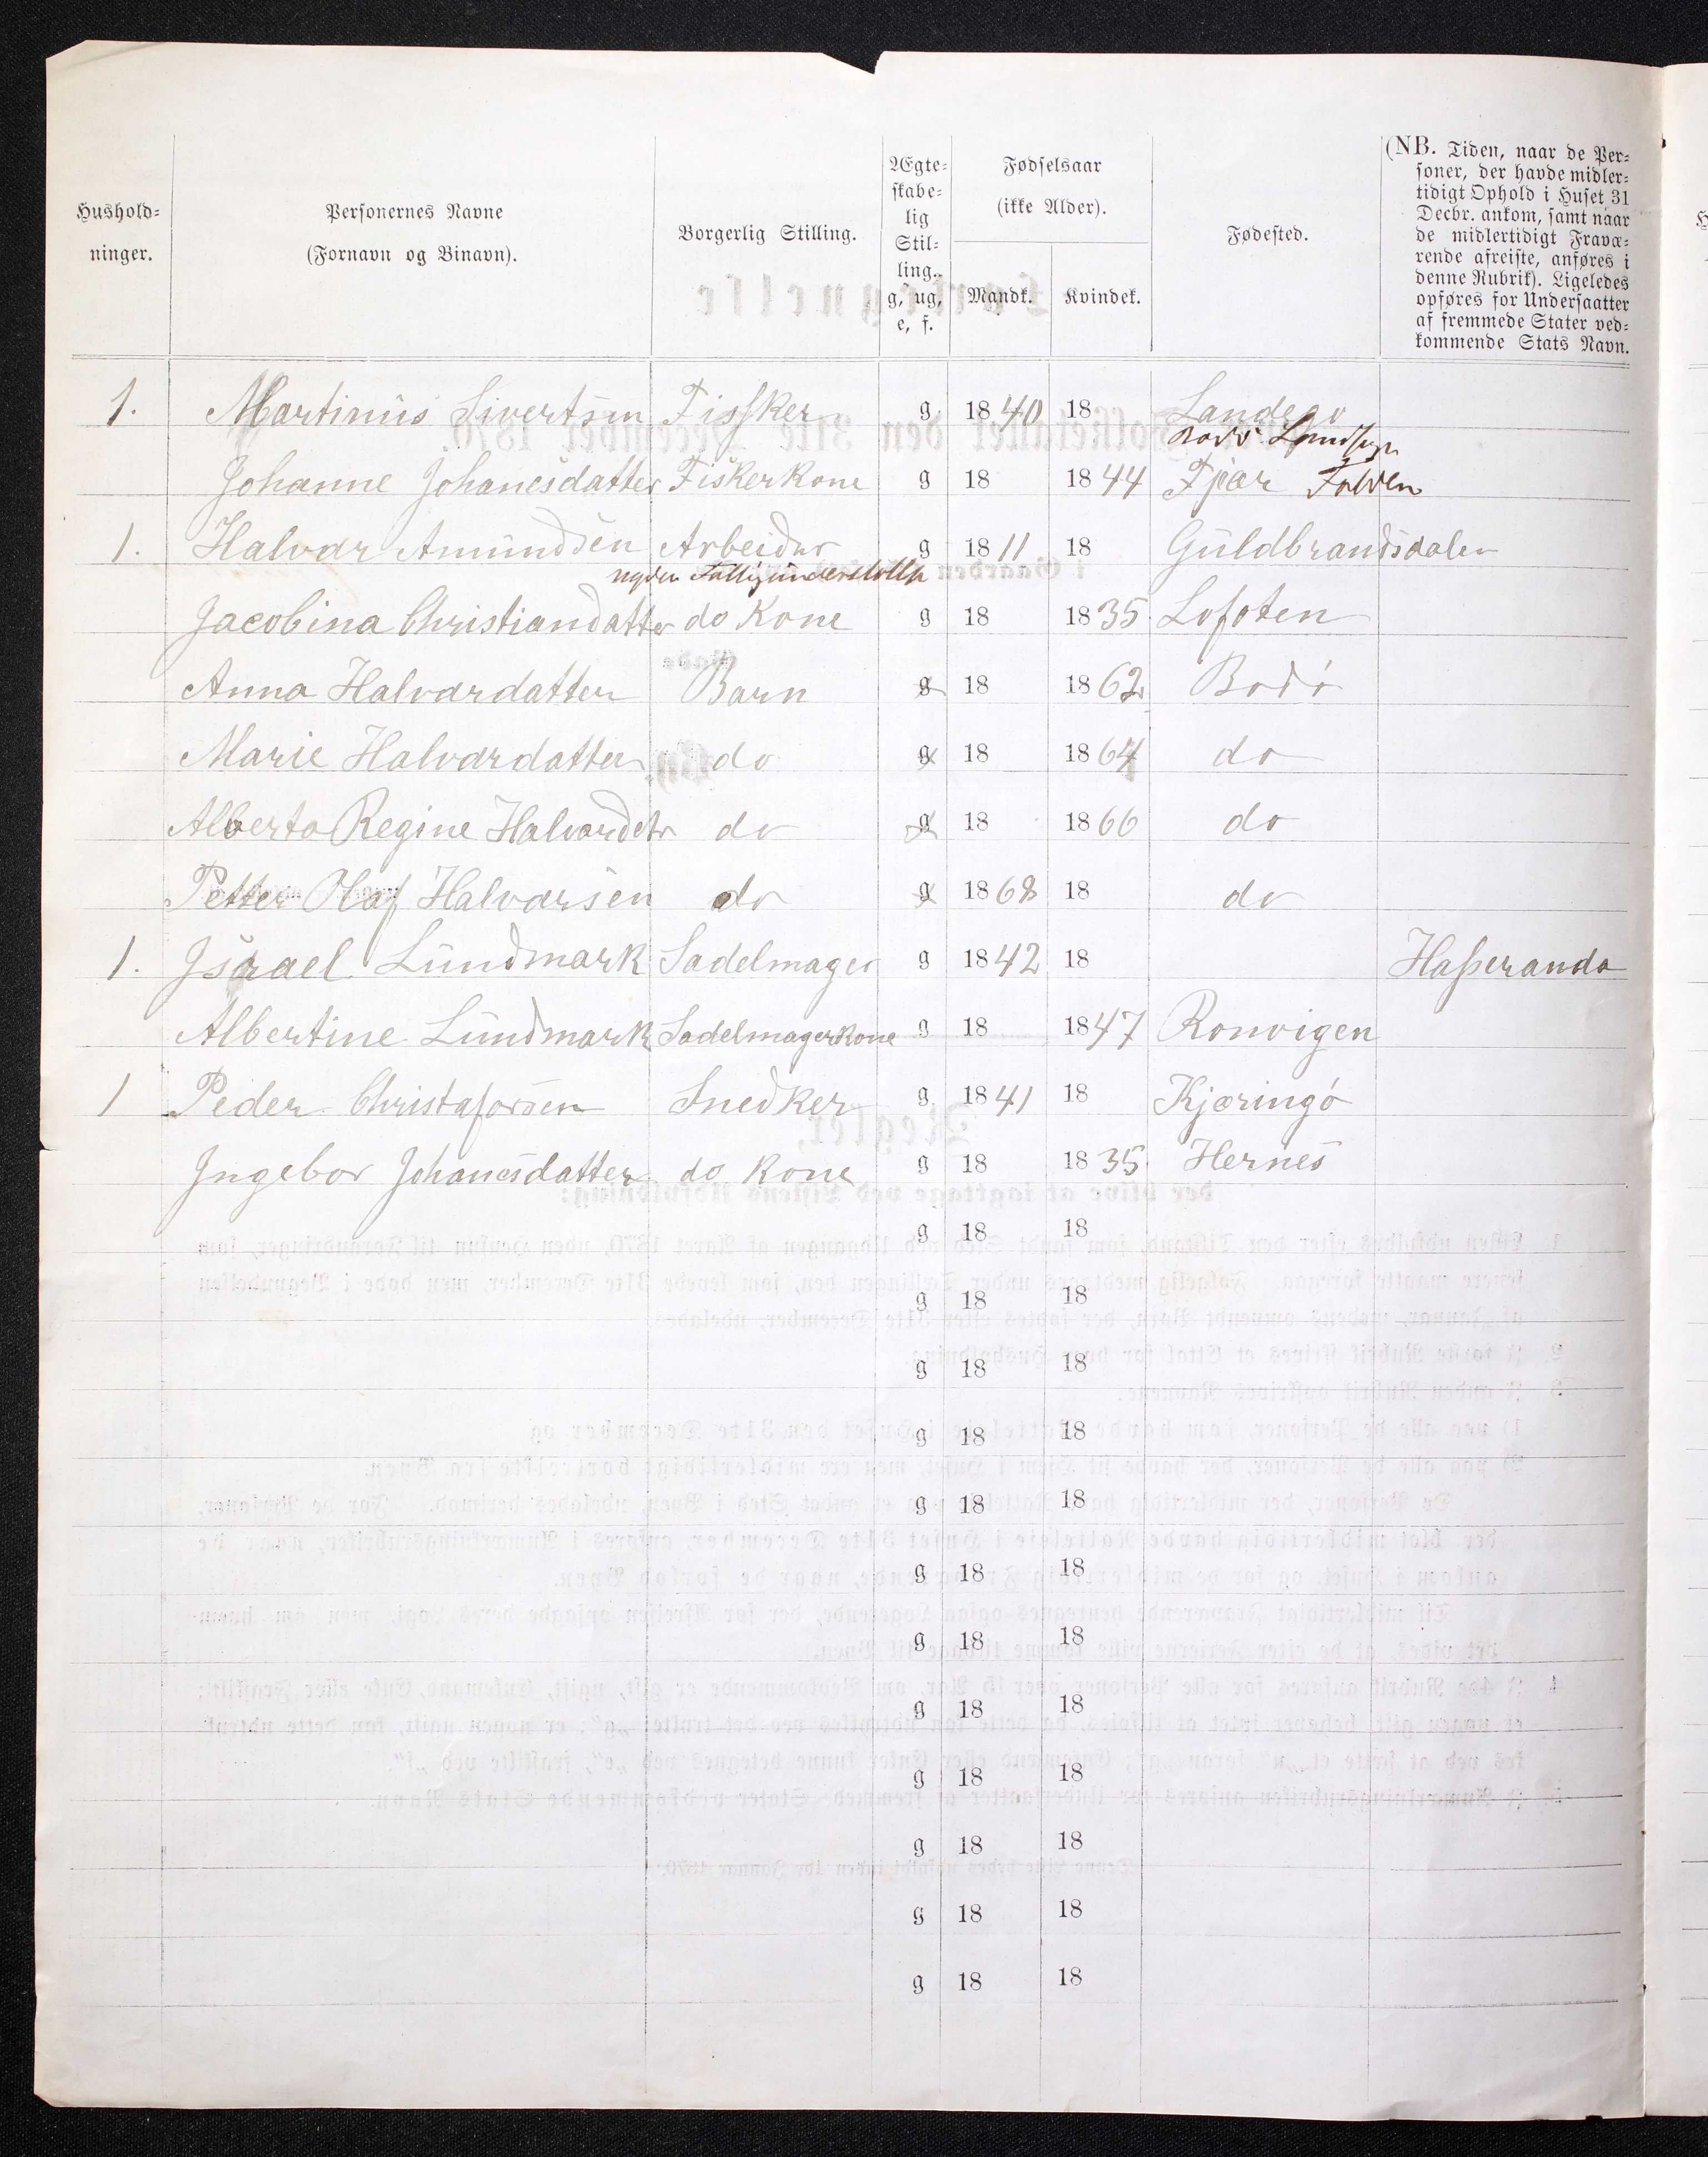 Hushold-
ninger.
Personernes Navne
(Fornavn og Binavn).
Borgerlig Stilling.
Ægte-
skabe-
lig
Stil-
ling.
g, ug,
e, f.
Fødselsaar
(ikke Alder).
Mandk. Kvindek.
Fødested.
(NB. Tiden, naar de Per-
soner, der havde midler-
tidigt Ophold i Huset 31
Decbr. ankom, samt naar
de midlertidigt Fravæ-
rende afreiste, anføres i
denne Rubrik). Ligeledes
opføres for Undersaatter
af fremmede Stater ved-
kommende Stats Navn.
1. Martinus Sivertsen Fissker g 1840 18 Landego
Bodø Landsogn
Johanne Johanesdatter Fiskerkone g 18 1844 Fjær Folden
1. Halvar Amundsen Arbeider g 1811 18 Guldbrandsdalen
nyder Fattigunderstøttelse
Jacobina Christiandatter do Kone g 18 1835 Lofoten
Anna Halvardatter Barn g 18 1862 Bodó
Marie Halvardatter do g 18 1864 do
Alberta Regine Halvardtr do g 18 1866 do
Petter Olaf Halvarsen do g 1868 18 do
1. Jsrael Lundmark Sadelmager g 1842 18 Haperanda
Albertine Lundmark Sadelmagerkone g 18 1847 Ronvigen
1 Peder Christaforsen Snedker g 1841 18 Kjæringó
Jngebor Johanesdatter do Kone g 18 1835 Hernes
g 18 18
g 18 18
g 18 18
g 18 18
g 18 18
g 18 18
g 18 18
g 18 18
g 18 18
g 18 18
g 18 18
g 18 18